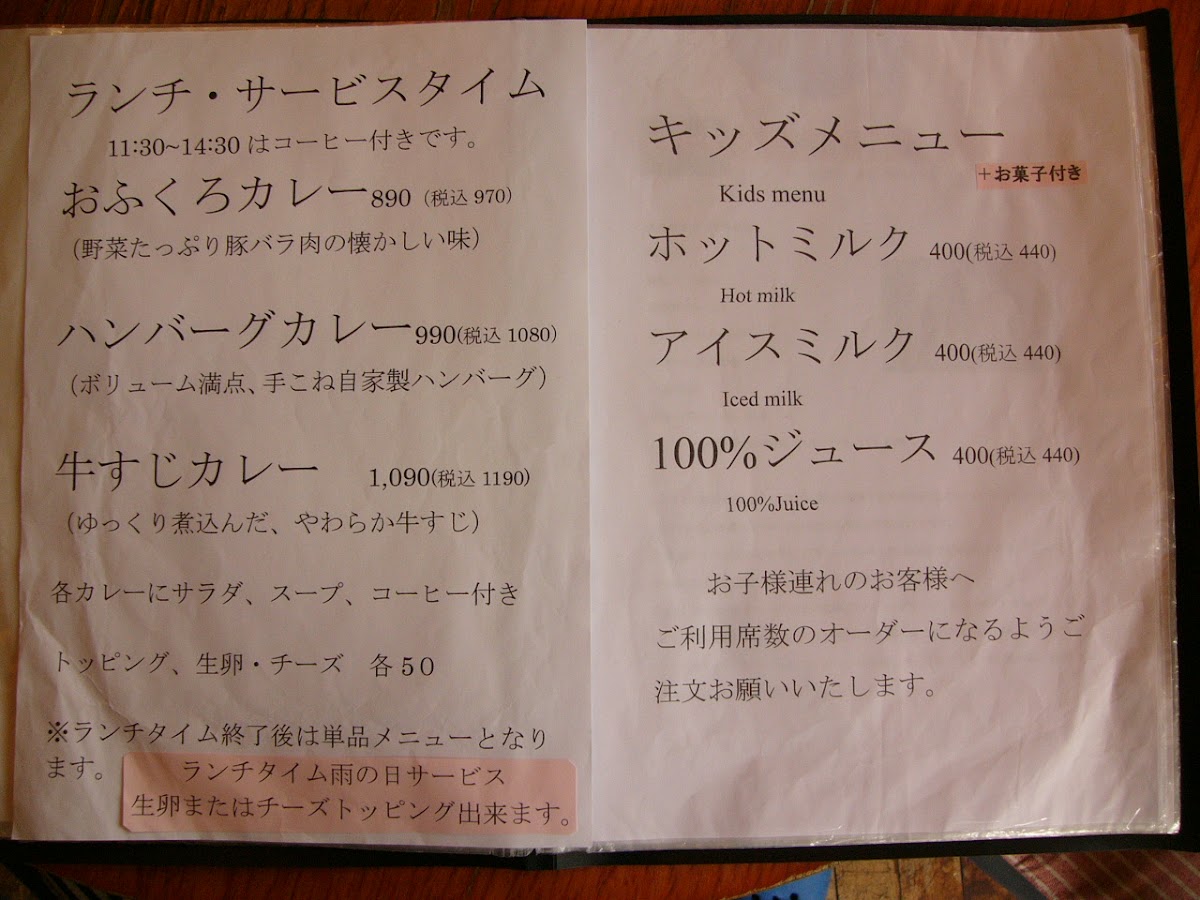 ランチ・サービスタイム
11:30~14:30 はコーヒー付きです。
おふくろカレー890 (税込 970)
(野菜たっぷり豚バラ肉の懐かしい味)
ハンバーグカレー990(税込 1080)
(ボリューム満点、手こね自家製ハンバーグ)
牛すじカレー 1,090(税込 1190)
(ゆっくり煮込んだ、やわらか牛すじ)
各カレーにサラダ、スープ、コーヒー付き
トッピング、生卵・チーズ 各50
※ランチタイム終了後は単品メニューとなり
ます。
ランチタイム雨の日サービス
生卵またはチーズトッピング出来ます。
キッズメニュー
+お菓子付き
Kids menu
ホットミルク 400(税込 440)
Hot milk
アイスミルク 400(税込 440)
Iced milk
100%ジュース 400(税込 440)
100%Juice
お子様連れのお客様へ
ご利用席数のオーダーになるようご
注文お願いいたします。